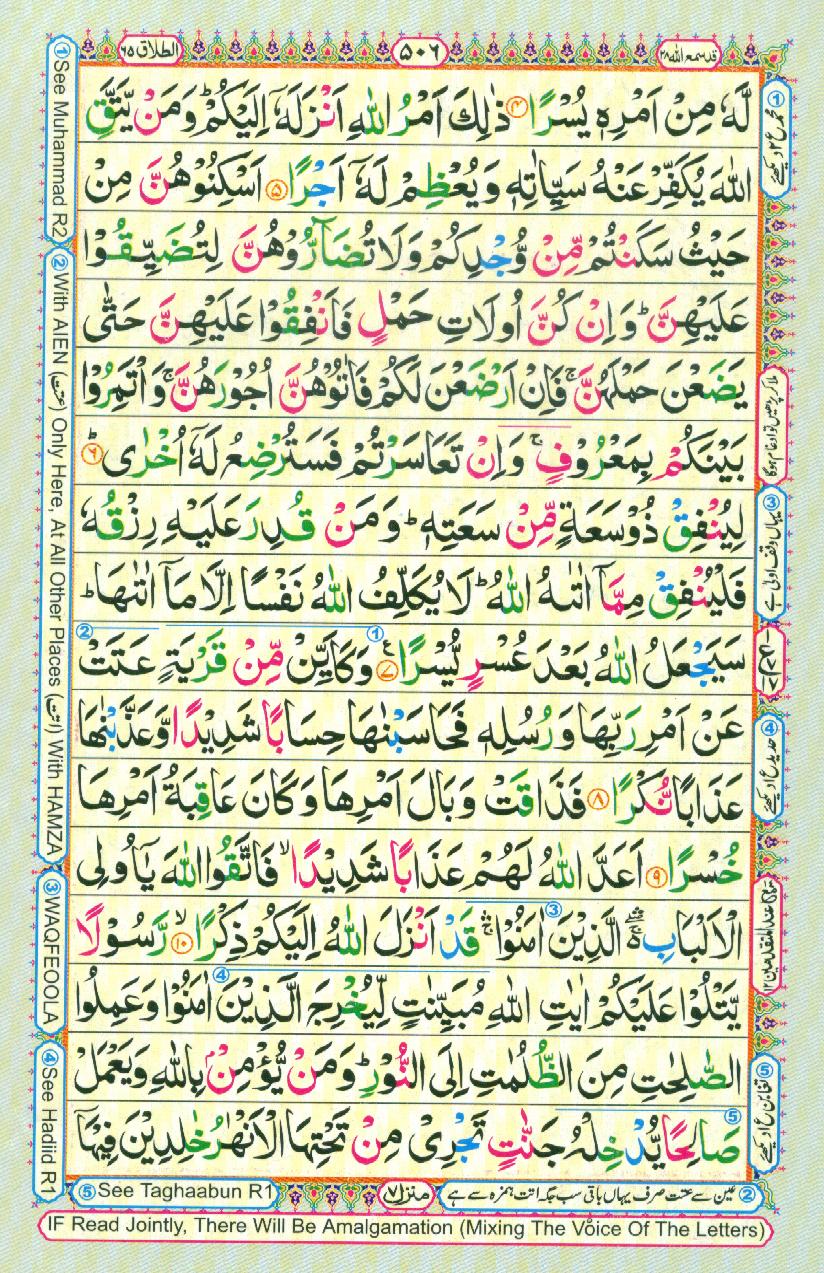 الطلاق ٦٥
٥٠٦
قد سمع الله ٢٨
لَّهٗ مِنْ اَمْرِهٖ يُسْرًا ۝٤ ذٰلِكَ اَمْرُ اللّٰهِ اَنْزَلَهٗۤ اِلَيْكُمْ ؕ وَمَنْ يَّتَّقِ
اللّٰهَ يُكَفِّرْ عَنْهُ سَيِّاٰتِهٖ وَيُعْظِمْ لَهٗۤ اَجْرًا ۝٥ اَسْكِنُوْهُنَّ مِنْ
حَيْثُ سَكَنْتُمْ مِّنْ وُّجْدِكُمْ وَلَا تُضَآرُّوْهُنَّ لِتُضَيِّقُوْا
عَلَيْهِنَّ ؕ وَاِنْ كُنَّ اُولَاتِ حَمْلٍ فَاَنْفِقُوْا عَلَيْهِنَّ حَتّٰى
يَضَعْنَ حَمْلَهُنَّ ۚ فَاِنْ اَرْضَعْنَ لَكُمْ فَاٰتُوْهُنَّ اُجُوْرَهُنَّ ۚ وَاْتَمِرُوْا
بَيْنَكُمْ بِمَعْرُوْفٍ ۚ وَاِنْ تَعَاسَرْتُمْ فَسَتُرْضِعُ لَهٗۤ اُخْرٰى ؕ۝٦
لِيُنْفِقْ ذُوْ سَعَةٍ مِّنْ سَعَتِهٖ ؕ وَمَنْ قُدِرَ عَلَيْهِ رِزْقُهٗ
فَلْيُنْفِقْ مِمَّاۤ اٰتٰىهُ اللّٰهُ ؕ لَا يُكَلِّفُ اللّٰهُ نَفْسًا اِلَّا مَاۤ اٰتٰىهَا ؕ
سَيَجْعَلُ اللّٰهُ بَعْدَ عُسْرٍ يُّسْرًا ۝٧ وَكَاَيِّنْ مِّنْ قَرْيَةٍ عَتَتْ
عَنْ اَمْرِ رَبِّهَا وَرُسُلِهٖ فَحَاسَبْنٰهَا حِسَابًا شَدِيْدًا وَّعَذَّبْنٰهَا
عَذَابًا نُّكْرًا ۝٨ فَذَاقَتْ وَبَالَ اَمْرِهَا وَكَانَ عَاقِبَةُ اَمْرِهَا
خُسْرًا ۝٩ اَعَدَّ اللّٰهُ لَهُمْ عَذَابًا شَدِيْدًا ۙ فَاتَّقُوا اللّٰهَ يٰۤاُولِى
الْاَلْبَابِ ۛۚۖ الَّذِيْنَ اٰمَنُوْا ۛۚ قَدْ اَنْزَلَ اللّٰهُ اِلَيْكُمْ ذِكْرًا ۙ۝١٠ رَّسُوْلًا
يَّتْلُوْا عَلَيْكُمْ اٰيٰتِ اللّٰهِ مُبَيِّنٰتٍ لِّيُخْرِجَ الَّذِيْنَ اٰمَنُوْا وَعَمِلُوا
الصّٰلِحٰتِ مِنَ الظُّلُمٰتِ اِلَى النُّوْرِ ؕ وَمَنْ يُّؤْمِنْ بِاللّٰهِ وَيَعْمَلْ
صَالِحًا يُّدْخِلْهُ جَنّٰتٍ تَجْرِيْ مِنْ تَحْتِهَا الْاَنْهٰرُ خٰلِدِيْنَ فِيْهَاۤ
② عین سے عتت صرف یہاں باقی سب جگہ اتت ہمزہ سے ہے
منزل ٧
⑤ See Taghaabun R1
IF Read Jointly, There Will Be Amalgamation (Mixing The Voice Of The Letters)
① See Muhammad R2
② With AIEN (عتت) Only Here, At All Other Places (اتت) With HAMZA
③ WAQFEOOLA
④ See Hadiid R1
① محمد ع ٢ دیکھئے
ملا کر پڑھیں تو ادغام ہوگا
③ یہاں وقف اولی ہے
④ حدید ع ١ دیکھئے
⑤ تغابن ع ١ دیکھئے